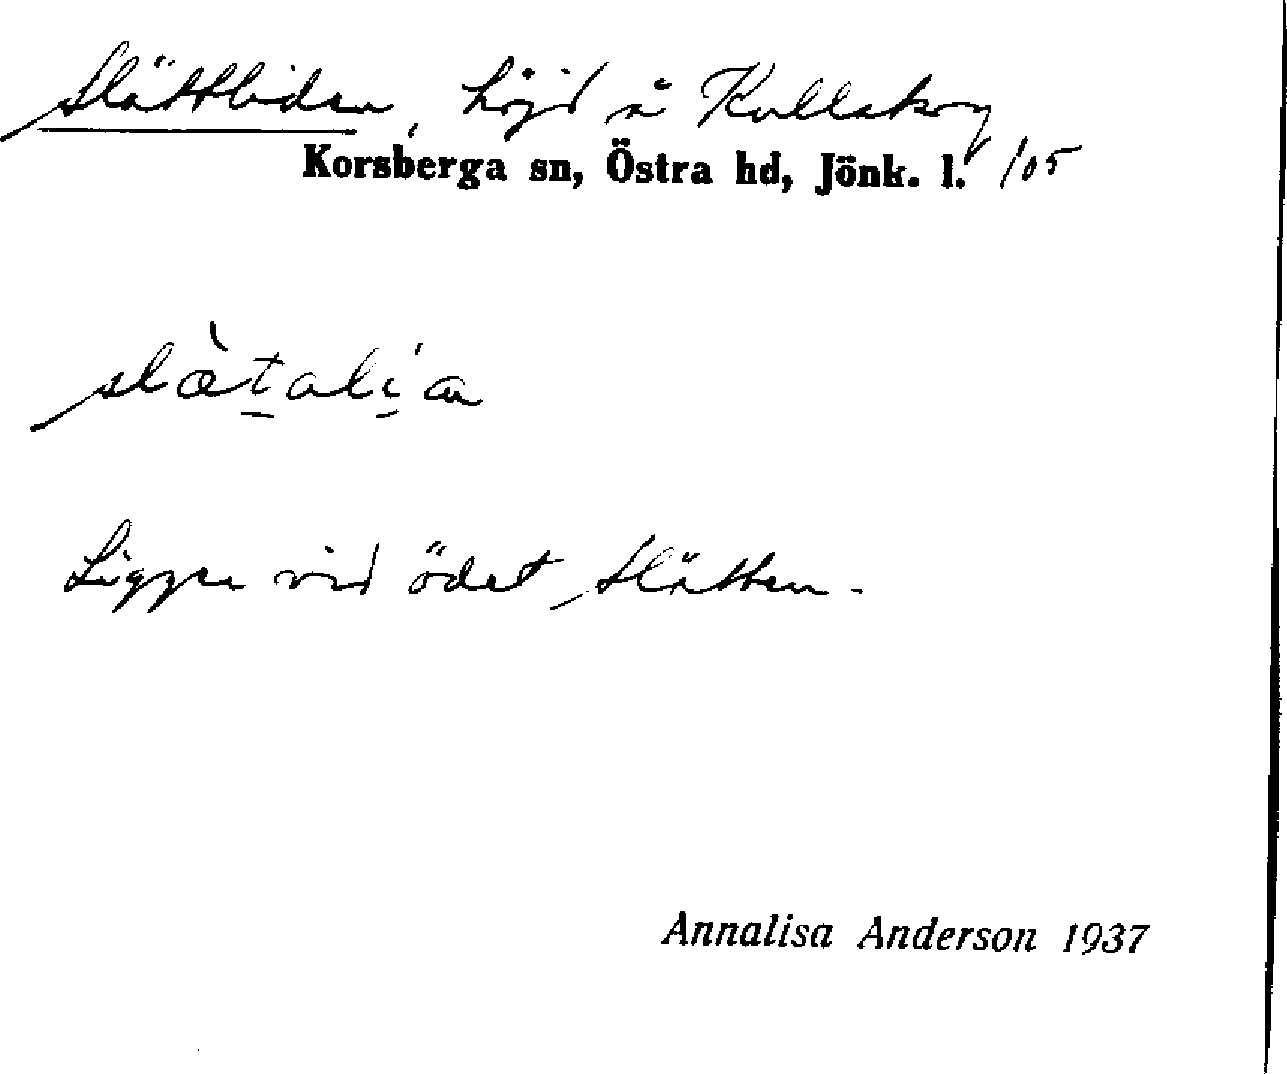 Slättliden, höjd å Kullskog
Korsberga sn, Östra hd, Jönk. l. 105
slætali̠a
Ligger vid ödet Slätten.
Annalisa Anderson 1937